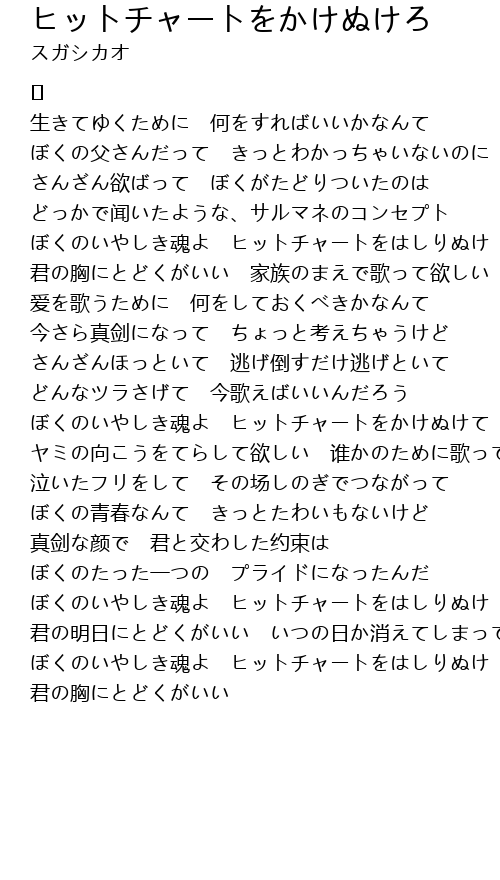 ヒットチャートをかけぬけろ
スガシカオ
生きてゆくために　何をすればいいかなんて
ぼくの父さんだって　きっとわかっちゃいないのに
さんざん欲ばって　ぼくがたどりついたのは
どっかで闻いたような、サルマネのコンセプト
ぼくのいやしき魂よ　ヒットチャートをはしりぬけ
君の胸にとどくがいい　家族のまえで歌って欲しい
爱を歌うために　何をしておくべきかなんて
今さら真剑になって　ちょっと考えちゃうけど
さんざんほっといて　逃げ倒すだけ逃げといて
どんなツラさげて　今歌えばいいんだろう
ぼくのいやしき魂よ　ヒットチャートをかけぬけて
ヤミの向こうをてらして欲しい　誰かのために歌って
泣いたフリをして　その场しのぎでつながって
ぼくの青春なんて　きっとたわいもないけど
真剑な颜で　君と交わした约束は
ぼくのたった一つの　プライドになったんだ
ぼくのいやしき魂よ　ヒットチャートをはしりぬけ
君の明日にとどくがいい　いつの日か消えてしまって
ぼくのいやしき魂よ　ヒットチャートをはしりぬけ
君の胸にとどくがいい